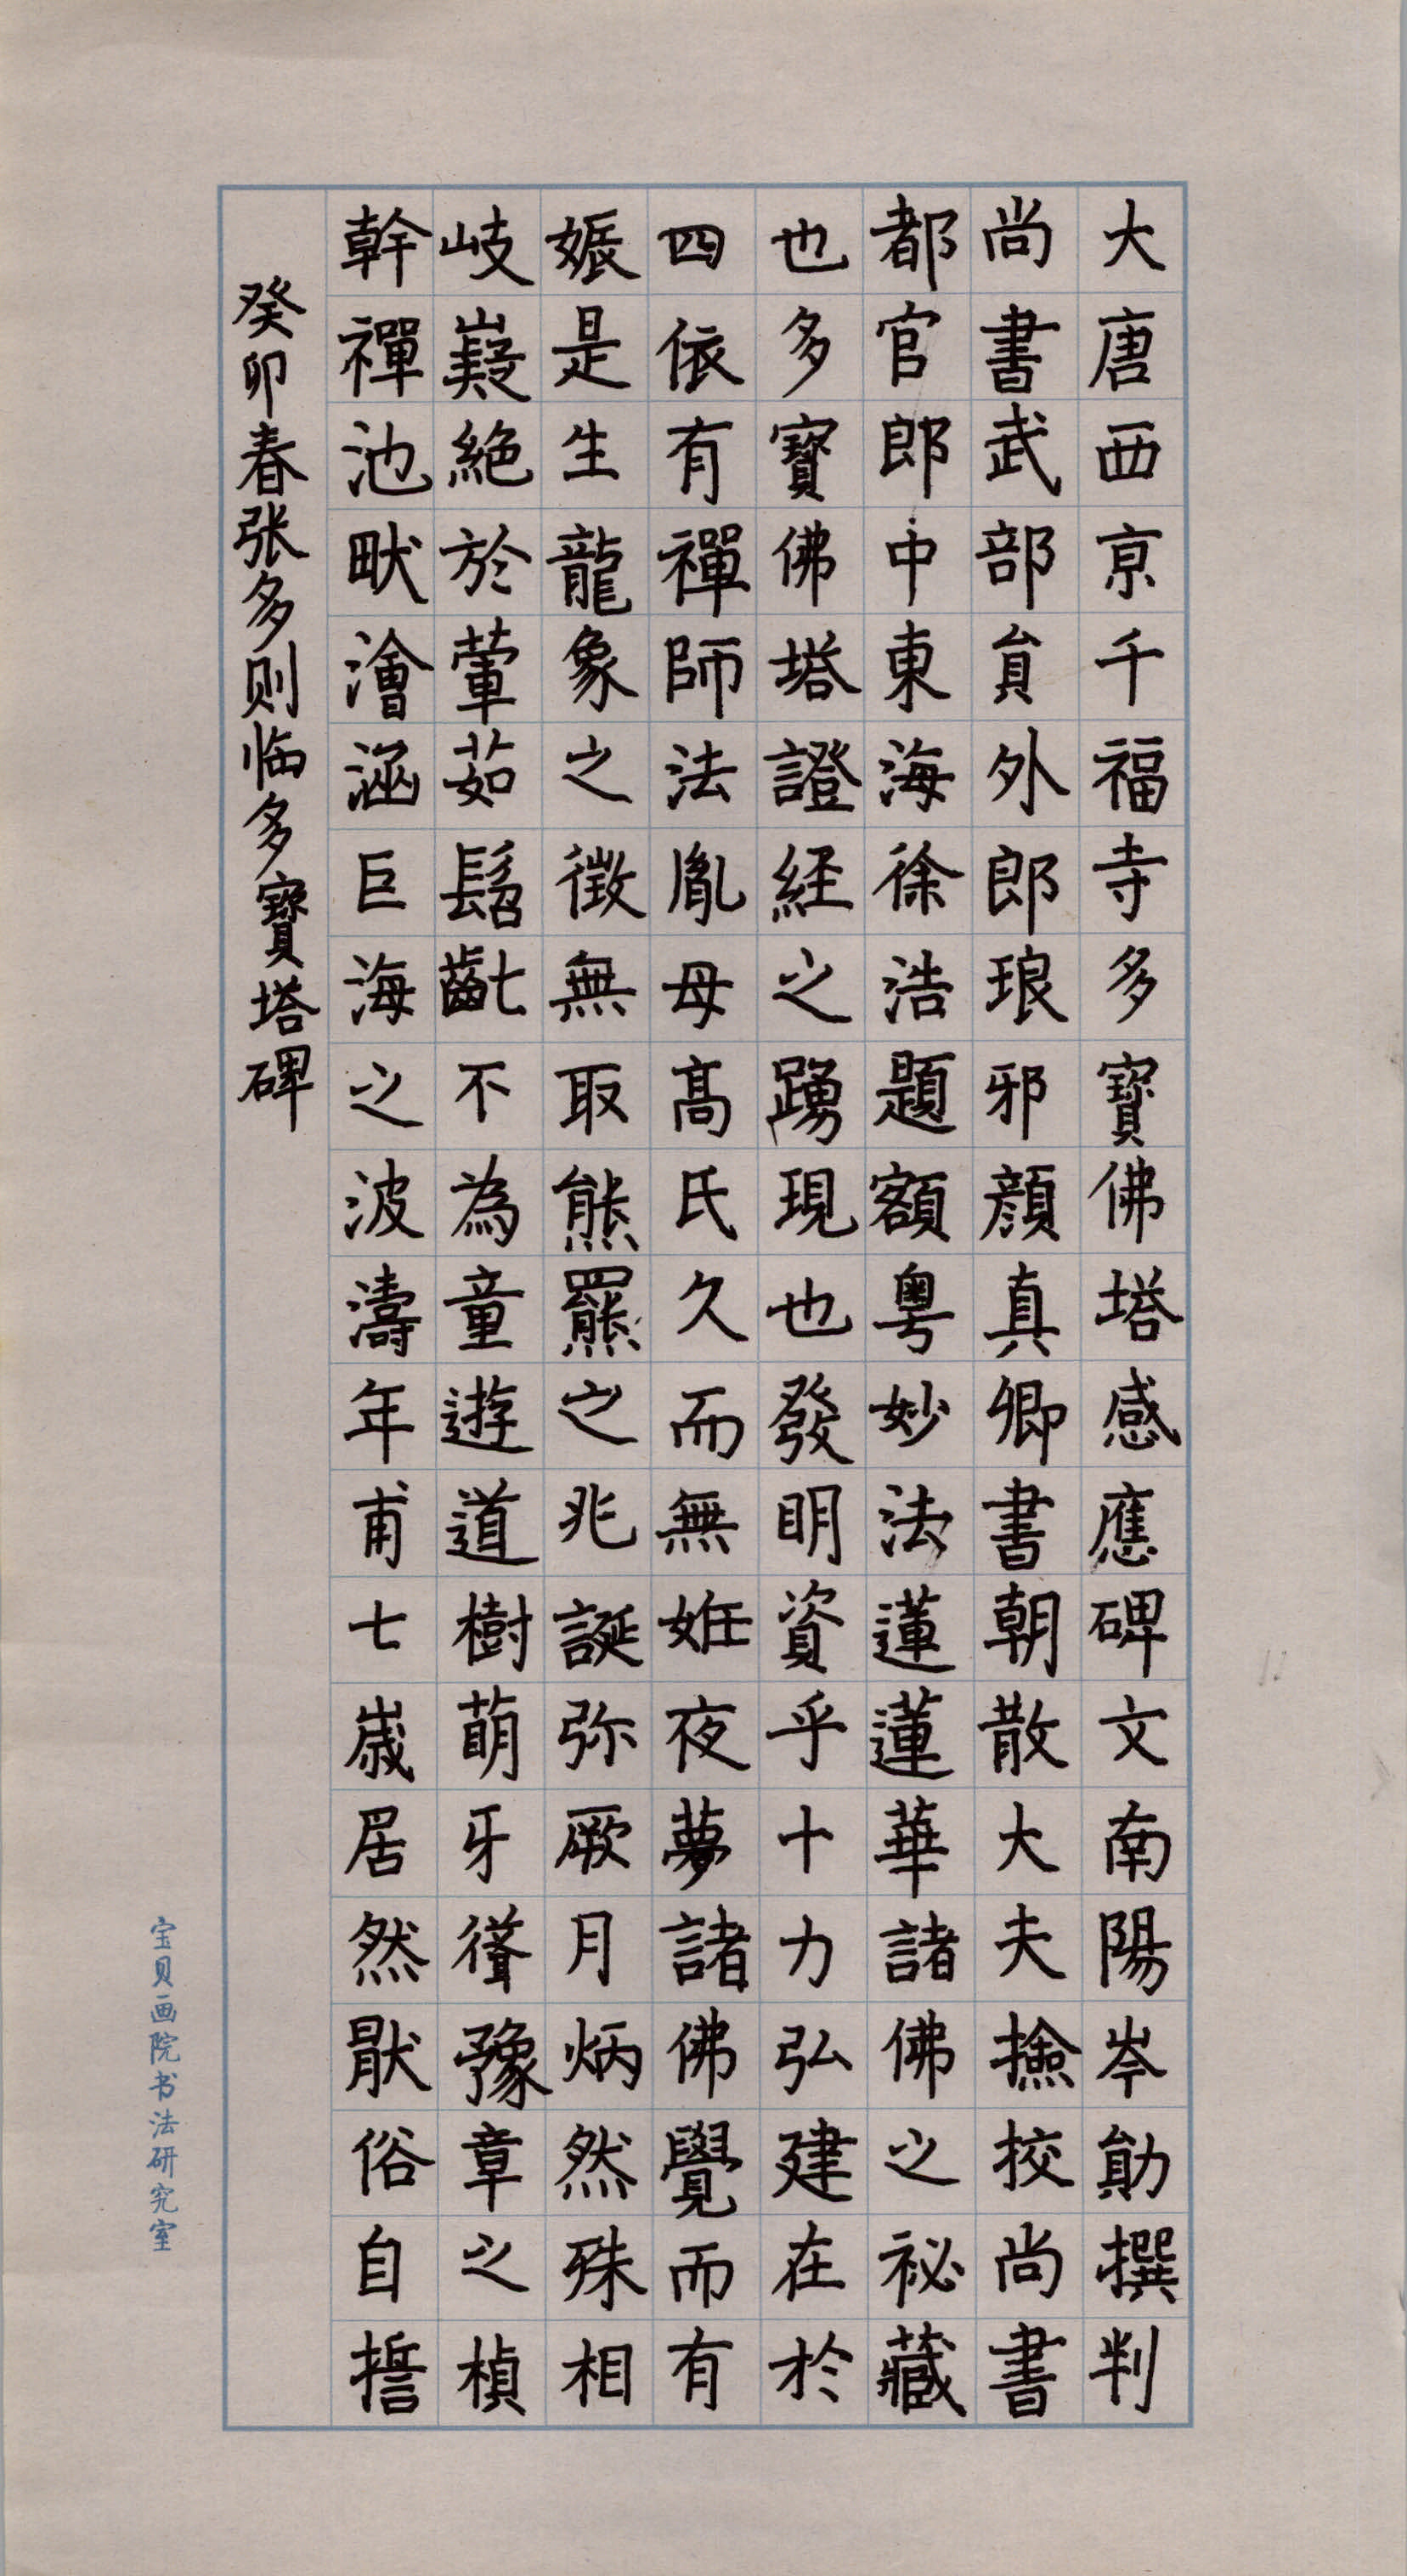 大唐西京千福寺多寶佛塔感應碑文南陽岑勛撰判
尚書武部員外郎琅邪顏真卿書朝散大夫撿挍尚書
都官郎中東海徐浩題額粵妙法蓮蓮華諸佛之祕藏
也多寶佛塔證経之踴現也發明資乎十力弘建在於
四依有禪師法胤母髙氏久而無姙夜夢諸佛覺而有
娠是生龍象之徵無取熊羆之兆誕弥厥月炳然殊相
岐嶷絶於葷茹髫齓不為童遊道樹萌牙聳豫章之楨
幹禪池畎澮涵巨海之波濤年甫七歲居然猒俗自誓
癸卯春张多则临多寶塔碑
宝贝画院书法研究室